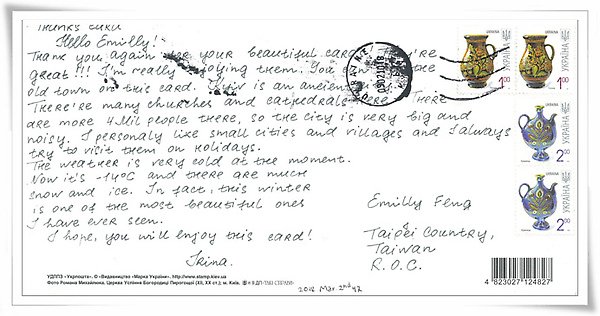 Thanks
Hello Emilly!
Thank you again for your beautiful card They're
great!!! I'm really enjoying them. You can
old town on this card. Kyiv is an ancient
There're many churches and cathedrals here. There
are more 4 Mil people there, so the city is very big and
noisy. I personaly like small cities and villages and I always
try to visit them on holidays.
The weather is very cold at the moment.
Now it's -14°C and there are much
snow and ice. In fact, this winter
is one of the most beautiful ones
I have ever seen.
I hope, you will enjoy this card!
Irina.
УКРАЇНА
1.00
УКРАЇНА
1.00
УКРАЇНА
2.00
УКРАЇНА
2.00
Emilly Feng
Taipei Country,
Taiwan
R.O.C.
УДППЗ «Укрпошта». © Видавництво «Марка України». http://www.stamp.kiev.ua
Фото Романа Михайлюка. Церква Успіння Богородиці Пирогощої (XII, XX ст.);
4 823027 124827
Mar. 2nd